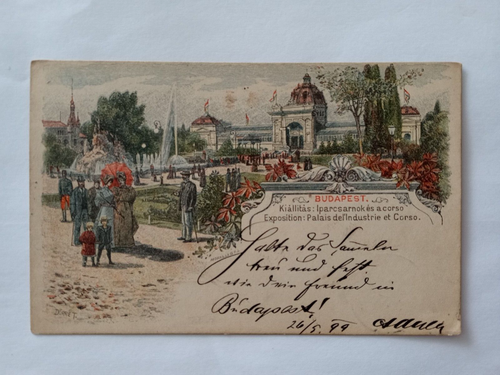 BUDAPEST.
Kiállítás: Iparcsarnok és a corso
Exposition: Palais de l'Industrie et Corso.
Halte das Sameln
treu und fest
wie drin Freund in
Budapest!
26/5. 99